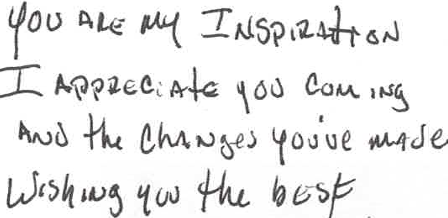 You are my Inspiration
I appreciate you coming
And the changes you've made
Wishing you the best